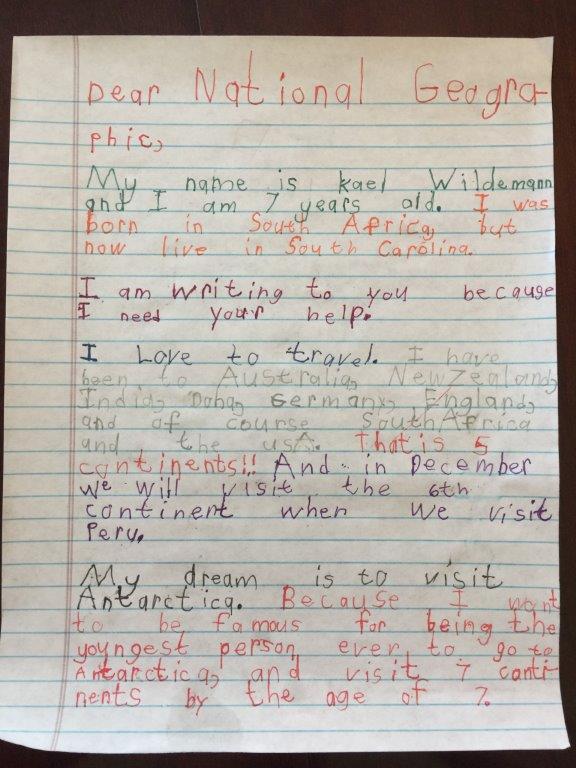 Dear National Geogra-
phic,
My name is kael Wildemann
and I am 7 years old. I was
born in South Africa, but
now live in South Carolina.
I am writing to you because
I need your help.
I Love to travel. I have
been to Australia, NewZealand,
India, Doha, Germany, England,
and of course SouthAfrica
and the USA. That is 5
continents!! And in December
we will visit the 6th
continent when we visit
Peru.
My dream is to visit
Antarctica. Because I want
to be famous for being the
youngest person ever to go to
Antarctica, and visit 7 conti-
nents by the age of 7.